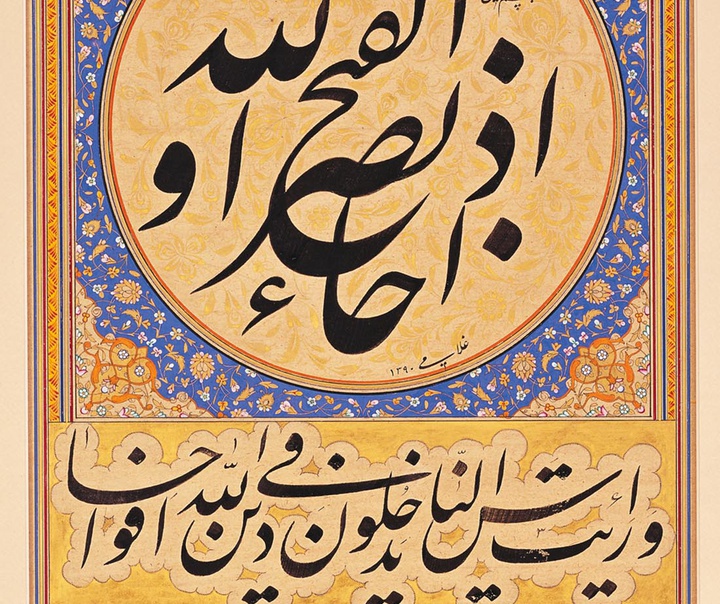 اذا جاء نصر الله و الفتح
۱۳۹۰
و رأیت الناس یدخلون فی دین الله افواجا